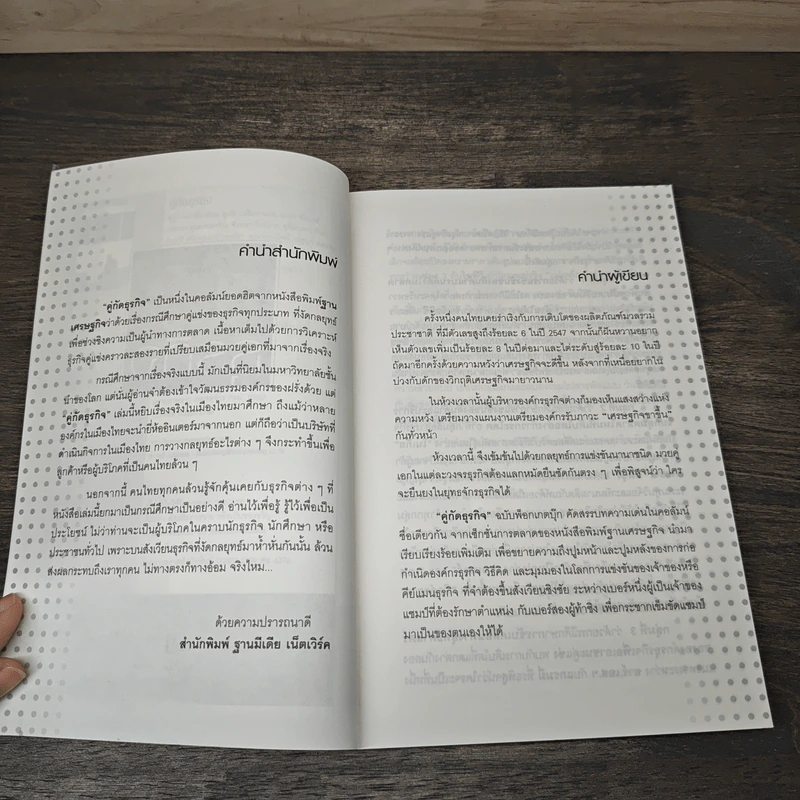 คำนำสำนักพิมพ์
"คู่กัดธุรกิจ" เป็นหนึ่งในคอลัมน์ยอดฮิตจากหนังสือพิมพ์ฐาน
เศรษฐกิจว่าด้วยเรื่องกรณีศึกษาคู่แข่งของธุรกิจทุกประเภท ที่งัดกลยุทธ์
เพื่อช่วงชิงความเป็นผู้นำทางการตลาด เนื้อหาเต็มไปด้วยการวิเคราะห์
ธุรกิจคู่แข่งคราวละสองรายที่เปรียบเสมือนมวยคู่เอกที่มาจากเรื่องจริง
กรณีศึกษาจากเรื่องจริงแบบนี้ มักเป็นที่นิยมในมหาวิทยาลัยชั้น
นำของโลก แต่นั่นผู้อ่านจำต้องเข้าใจวัฒนธรรมองค์กรของฝรั่งด้วย แต่
"คู่กัดธุรกิจ" เล่มนี้หยิบเรื่องจริงในเมืองไทยมาศึกษา ถึงแม้ว่าหลาย
องค์กรในเมืองไทยจะนำยี่ห้ออินเตอร์มาจากนอก แต่ก็ถือว่าเป็นบริษัทที่
ดำเนินกิจการในเมืองไทย การวางกลยุทธ์อะไรต่าง ๆ จึงกระทำขึ้นเพื่อ
ลูกค้าหรือผู้บริโภคที่เป็นคนไทยล้วน ๆ
นอกจากนี้ คนไทยทุกคนล้วนรู้จักคุ้นเคยกับธุรกิจต่าง ๆ ที่
หนังสือเล่มนี้ยกมาเป็นกรณีศึกษาเป็นอย่างดี อ่านไว้เพื่อรู้ รู้ไว้เพื่อเป็น
ประโยชน์ ไม่ว่าท่านจะเป็นผู้บริโภคในคราบนักธุรกิจ นักศึกษา หรือ
ประชาชนทั่วไป เพราะบนสังเวียนธุรกิจที่งัดกลยุทธ์มาห้ำหั่นกันนั้น ล้วน
ส่งผลกระทบถึงเราทุกคน ไม่ทางตรงก็ทางอ้อม จริงไหม...
ด้วยความปรารถนาดี
สำนักพิมพ์ ฐานมีเดีย เน็ตเวิร์ค
คำนำผู้เขียน
ครั้งหนึ่งคนไทยเคยร่าเริงกับการเติบโตของผลิตภัณฑ์มวลรวม
ประชาชาติ ที่มีตัวเลขสูงถึงร้อยละ 6 ในปี 2547 จากนั้นก็ฝันหวานอยาก
เห็นตัวเลขเพิ่มเป็นร้อยละ 8 ในปีต่อมาและไต่ระดับสู่ร้อยละ 10 ในปี
ถัดมาอีกครั้งด้วยความหวังว่าเศรษฐกิจจะดีขึ้น หลังจากที่เหนื่อยยากใน
บ่วงกับดักของวิกฤติเศรษฐกิจมายาวนาน
ในห้วงเวลานั้นผู้บริหารองค์กรธุรกิจต่างก็มองเห็นแสงสว่างแห่ง
ความหวัง เตรียมวางแผนงานเตรียมองค์กรรับภาวะ "เศรษฐกิจขาขึ้น"
กันทั่วหน้า
ห้วงเวลานี้ จึงเข้มข้นไปด้วยกลยุทธ์การแข่งขันนานาชนิด มวยคู่
เอกในแต่ละวงจรธุรกิจต้องแลกหมัดยืนซัดกันตรง ๆ เพื่อพิสูจน์ว่า ใคร
จะยืนยงในยุทธจักรธุรกิจได้
"คู่กัดธุรกิจ" ฉบับพ็อกเกตบุ๊ก คัดสรรบทความเด่นในคอลัมน์
ชื่อเดียวกัน จากเซ็กชั่นการตลาดของหนังสือพิมพ์ฐานเศรษฐกิจ นำมา
เรียบเรียงร้อยเพิ่มเติม เพื่อขยายความถึงปูมหน้าและปูมหลังของการก่อ
กำเนิดองค์กรธุรกิจ วิธีคิด และมุมมองในโลกการแข่งขันของเจ้าของหรือ
คีย์แมนธุรกิจ ที่จำต้องขึ้นสังเวียนชิงชัย ระหว่างเบอร์หนึ่งผู้เป็นเจ้าของ
แชมป์ที่ต้องรักษาตำแหน่ง กับเบอร์สองผู้ท้าชิง เพื่อกระชากเข็มขัดแชมป์
มาเป็นของตนเองให้ได้